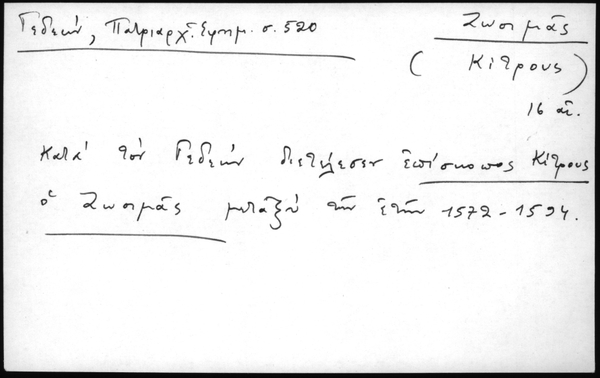 Γεδεών, Πατριαρχ. Εφημ. σ. 520
Ζωσιμᾶς
(Κίτρους)
16 αἰ.
Κατά τόν Γεδεών διετέλεσεν ἐπίσκοπος Κίτρους
ὁ Ζωσιμᾶς μεταξύ τῶν ἐτῶν 1572-1594.